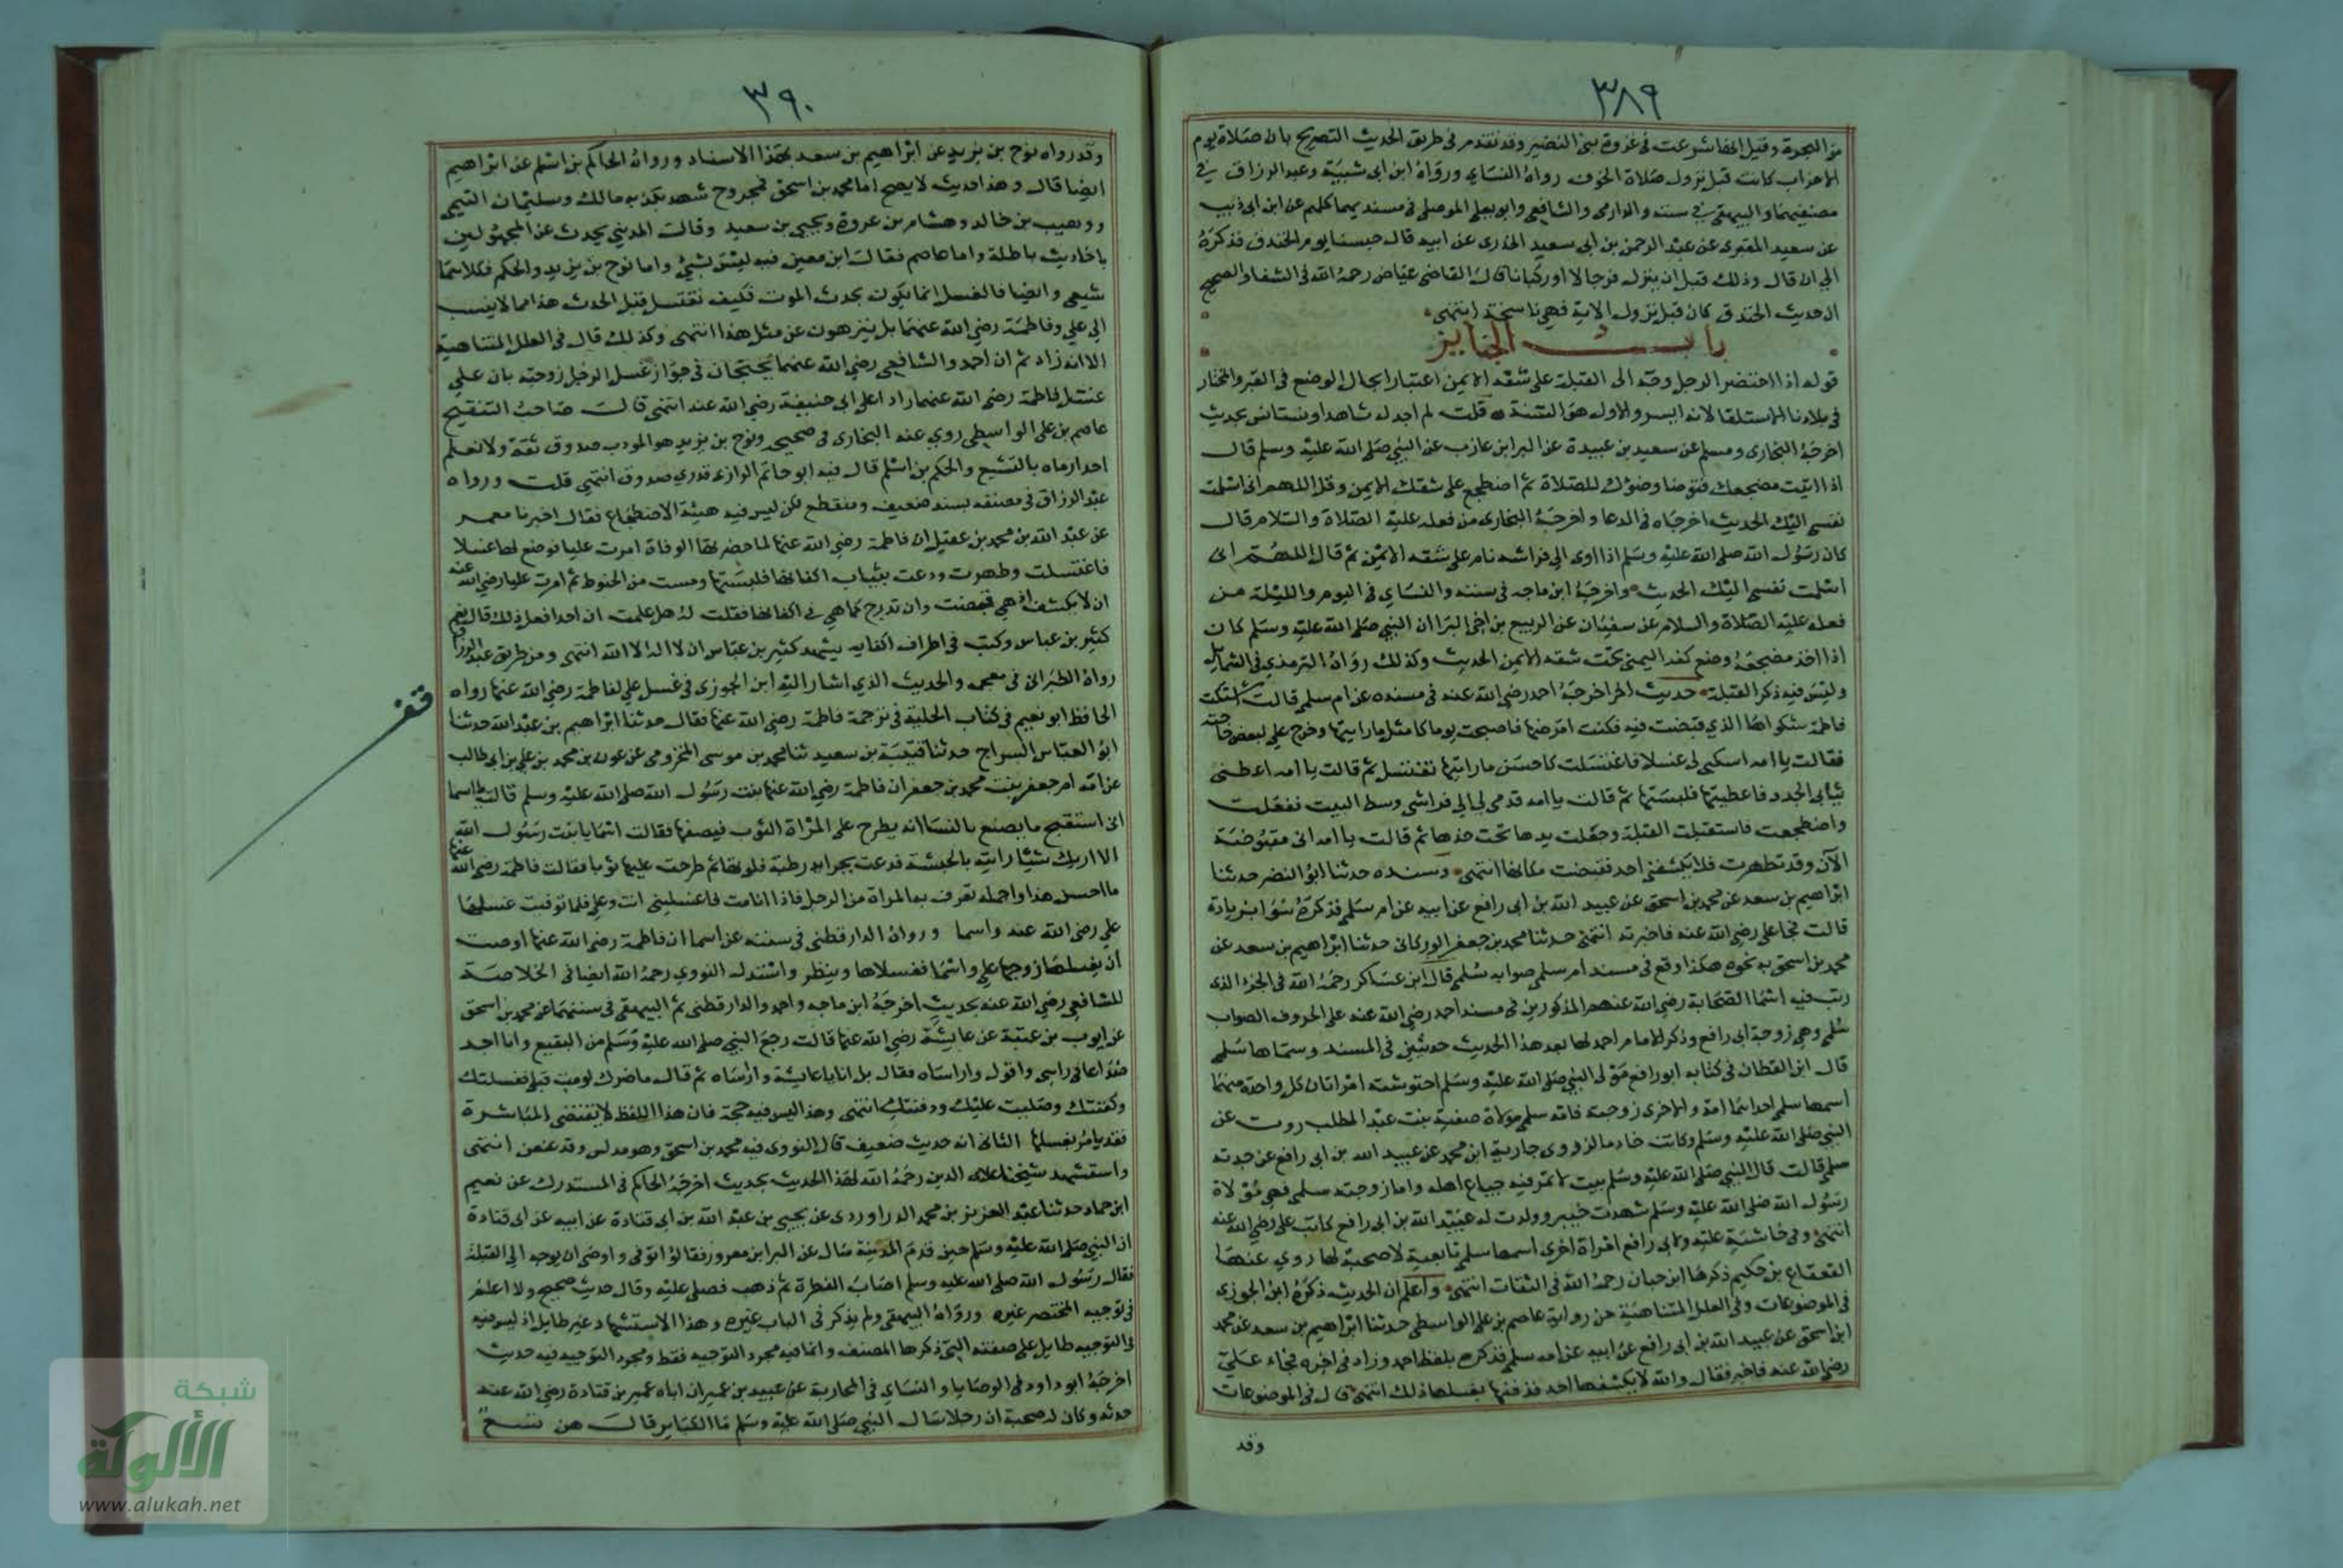 ٣٨٩
من الهجرة وقيل انها شرعت فى غزوة بنى النضير وقد تقدم فى طريق الحديث التصريح بان صلاة يوم
الاحزاب كانت قبل نزول صلاة الخوف رواه النساى ورواه ابن ابى شيبة وعبد الرزاق فى
مصنفيهما والبيهقى فى سننه والدارمى والشافعى وابو يعلى الموصلى فى مسنديهما كلهم عن ابن ابى ذئب
عن سعيد المقبرى عن عبد الرحمن بن ابى سعيد الخدرى عن ابيه قال حبسنا يوم الخندق فذكره
الى ان قال وذلك قبل ان ينزل فرجالا او ركبانا قال القاضى عياض رحمه الله فى الشفا والصحيح
ان حديث الخندق كان قبل نزول الاية فهى ناسخة انتهى
باب الجنايز
قوله اذا احتضر الرجل وجه الى القبلة على شقه الايمن اعتبارا بحال الوضع فى القبر والمختار
فى بلادنا الاستلقا لانه ايسر والاول هو السنة قلت لم اجد له شاهدا ونستانس بحديث
اخرجه البخارى ومسلم عن سعيد بن عبيدة عن البرا بن عازب عن النبى صلى الله عليه وسلم قال
اذا اتيت مضجعك فتوضا وضؤك للصلاة ثم اضطجع على شقك الايمن وقل اللهم انى اسلمت
نفسى اليك الحديث اخرجاه فى الدعا واخرجه البخارى من فعله عليه الصلاة والسلام قال
كان رسول الله صلى الله عليه وسلم اذا اوى الى فراشه نام على شقه الايمن ثم قال اللهم انى
اسلمت نفسى اليك الحديث واخرجه ابن ماجه فى سننه والنساى فى اليوم والليلة من
فعله عليه الصلاة والسلام عن سفيان عن الربيع بن اخى البرا ان النبى صلى الله عليه وسلم كان
اذا اخذ مضجعه وضع كفه اليمنى تحت شقه الايمن الحديث وكذلك رواه الترمذى فى الشمايل
وليس فيه ذكر القبلة حديث اخر اخرجه احمد رضى الله عنه فى مسنده عن ام سلمى قالت اشتكت
فاطمة شكواها الذى قبضت فيه فكنت امرضها فاصبحت يوما كامثل ما رايتها وخرج على لبعض حاجته
فقالت يا امه اسكبى لى غسلا فاغتسلت كاحسن ما رايتها تغتسل ثم قالت يا امه اعطنى
ثيابى الجدد فاعطيتها فلبستها ثم قالت يا امه قدمى لى الى فراشى وسط البيت ففعلت
واضطجعت فاستقبلت القبلة وجعلت يدها تحت خدها ثم قالت يا امه انى مقبوضة
الآن وقد تطهرت فلا يكشفنى احد فقبضت مكانها انتهى وسنده حدثنا ابو النضر حدثنا
ابراهيم بن سعد عن محمد بن اسحق عن عبيد الله بن ابى رافع عن ابيه عن ام سلمى فذكره سوا بزيادة
قالت فجا على رضى الله عنه فاخبرته انتهى حدثنا محمد بن جعفر الوركانى حدثنا ابراهيم بن سعد عن
محمد بن اسحق به نحوه هكذا وقع فى مسند ام سلمى صوابه سلمى قال ابن عساكر رحمه الله فى الجزء الذى
رتب فيه اسما الصحابة رضى الله عنهم المذكورين فى مسند احمد رضى الله عنه على الحروف الصواب
سلمى وهى زوجة ابى رافع وذكر الامام احمد لها بعد هذا الحديث حديثين فى المسند وسماها سلمى
قال ابن القطان فى كتابه ابو رافع مولى النبى صلى الله عليه وسلم احتوشته امراتان كل واحدة منهما
اسمها سلمى احداهما امه والاخرى زوجته فامه سلمى مولاة صفية بنت عبد المطلب روت عن
النبى صلى الله عليه وسلم وكانت خادما له روى جارية ابن محمد عن عبيد الله بن ابى رافع عن جدته
سلمى قالت قال النبى صلى الله عليه وسلم بيت لا تمر فيه جياع اهله واما زوجته سلمى فهى مولاة
رسول الله صلى الله عليه وسلم شهدت خيبر وولدت له عبيد الله بن ابى رافع كاتب على رضى الله عنه
انتهى وفى حاشية عليه ولابى رافع امراة اخرى اسمها سلمى تابعية لا صحبة لها روى عنها
القعقاع بن حكيم ذكرها ابن حبان رحمه الله فى الثقات انتهى واعلم ان الحديث ذكره ابن الجوزى
فى الموضوعات وفى العلل المتناهية من رواية عاصم بن على الواسطى حدثنا ابراهيم بن سعد عن محمد
ابن اسحق عن عبيد الله بن ابى رافع عن ابيه عن امه سلمى فذكره بلفظ احمد وزاد فى اخره فجاء على
رضى الله عنه فاخبر فقال والله لا يكشفها احد فدفنها بغسلها ذلك انتهى قال فى الموضوعات
وقد
٣٩٠
وقد رواه نوح بن يزيد عن ابراهيم بن سعد بهذا الاسناد ورواه الحاكم بن اسلم عن ابراهيم
ايضا قال وهذا حديث لا يصح اما محمد بن اسحق فمجروح شهد بكذبه مالك وسليمان التيمى
ووهيب بن خالد وهشام بن عروة ويحيى بن سعيد وقال المدينى يحدث عن المجهولين
باحاديث باطلة واما عاصم فقال ابن معين فيه ليس بشئ واما نوح بن يزيد والحكم فكلاهما
شيعى وايضا فالغسل انما يكون بحدث الموت فكيف تغتسل قبل الحدث هذا مما لا ينسب
الى على وفاطمة رضى الله عنهما بل ينزهون عن مثل هذا انتهى وكذلك قال فى العلل المتناهية
الا انه زاد ثم ان احمد والشافعى رضى الله عنهما يحتجان فى جواز غسل الرجل زوجته بان على
غسل فاطمة رضى الله عنهما ردا على ابى حنيفة رضى الله عنه انتهى قال صاحب التنقيح
عاصم بن على الواسطى روى عنه البخارى فى صحيحه ونوح بن يزيد هو المودب صدوق ثقة ولا نعلم
احدا رماه بالتشيع والحكم بن اسلم قال فيه ابو حاتم الرازى قدرى صدوق انتهى قلت ورواه
عبد الرزاق فى مصنفه بسند ضعيف ومنقطع لكن ليس فيه هيئة الاضطجاع فقال اخبرنا معمر
عن عبد الله بن محمد بن عقيل ان فاطمة رضى الله عنها لما حضرتها الوفاة امرت عليا فوضع لها غسلا
فاغتسلت وطهرت ودعت بثياب اكفانها فلبستها ومست من الحنوط ثم امرت عليا رضى الله عنه
ان لا يكشف اذا هى قبضت وان تدرج كما هى فى اكفانها فقلت له هل علمت ان احدا فعل ذلك قال نعم
كثير بن عباس وكتب فى اطراف اكفانه يشهد كثير بن عباس ان لا اله الا الله انتهى ومن طريق عبد الرزاق
رواه الطبرانى فى معجمه والحديث الذى اشار اليه ابن الجوزى فى غسل على لفاطمة رضى الله عنها رواه
قف
الحافظ ابو نعيم فى كتاب الحلية فى ترجمة فاطمة رضى الله عنها فقال حدثنا ابراهيم بن عبد الله حدثنا
ابو العباس السراج حدثنا قتيبة بن سعيد ثنا محمد بن موسى المخزومى عن عون بن محمد بن على بن ابى طالب
عن امه ام جعفر بنت محمد بن جعفر ان فاطمة رضى الله عنها بنت رسول الله صلى الله عليه وسلم قالت يا اسما
انى استقبح ما يصنع بالنسا انه يطرح على المراة الثوب فيصفها فقالت اسما يا بنت رسول الله
الا اريك شيئا رايته بالحبشة فدعت بجرايد رطبة فلوتها ثم طرحت عليها ثوبا فقالت فاطمة رضى الله عنها
ما احسن هذا واجمله تعرف به المراة من الرجل فاذا انا مت فاغسلينى انت وعلى فلما توفيت غسلها
على رضى الله عنه واسما ورواه الدارقطنى فى سننه عن اسما ان فاطمة رضى الله عنها اوصت
ان يغسلها زوجها على واسما فغسلاها وينظر واستدل النووى رحمه الله ايضا فى الخلاصة
للشافعى رضى الله عنه بحديث اخرجه ابن ماجه واحمد والدارقطنى ثم البيهقى فى سننهما عن محمد بن اسحق
عن ايوب بن عتبة عن عايشة رضى الله عنها قالت رجع النبى صلى الله عليه وسلم من البقيع وانا اجد
صداعا فى راسى واقول واراساه فقال بل انا يا عايشة واراساه ثم قال ما ضرك لو مت قبلى فغسلتك
وكفنتك وصليت عليك ودفنتك انتهى وهذا ليس فيه حجة فان هذا اللفظ لا يقتضى المباشرة
فقد يامر بغسلها الثانى انه حديث ضعيف قال النووى فيه محمد بن اسحق وهو مدلس وقد عنعن انتهى
واستشهد شيخنا علاء الدين رحمه الله لهذا الحديث بحديث اخرجه الحاكم فى المستدرك عن نعيم
ابن حماد حدثنا عبد العزيز بن محمد الدراوردى عن يحيى بن عبد الله بن ابى قتادة عن ابيه عن ابى قتادة
ان النبى صلى الله عليه وسلم حين قدم المدينة سال عن البرا بن معرور فقالوا توفى واوصى ان يوجه الى القبلة
فقال رسول الله صلى الله عليه وسلم اصاب الفطرة ثم ذهب فصلى عليه وقال حديث صحيح ولا اعلم
فى توجيه المحتضر غيره ورواه البيهقى ولم يذكر فى الباب غيره وهذا الاستشهاد غير طايل اذ ليس فيه
فى التوجيه طايل على صفته التى ذكرها المصنف وانما فيه مجرد التوجيه فقط ومجرد التوجيه فيه حديث
اخرجه ابو داود فى الوصايا والنساى فى المحاربة عن عبيد بن عمير ان اباه عمير بن قتادة رضى الله عنه
حدثه وكان له صحبة ان رجلا سال النبى صلى الله عليه وسلم ما الكباير قال هن تسع
شبكة
الألوكة
www.alukah.net